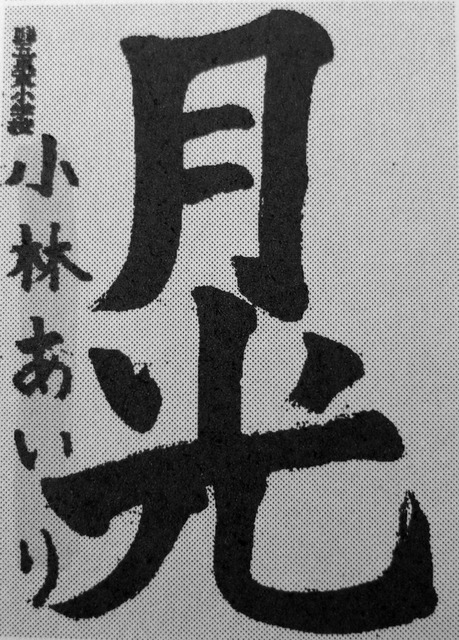 月光
小林あいり